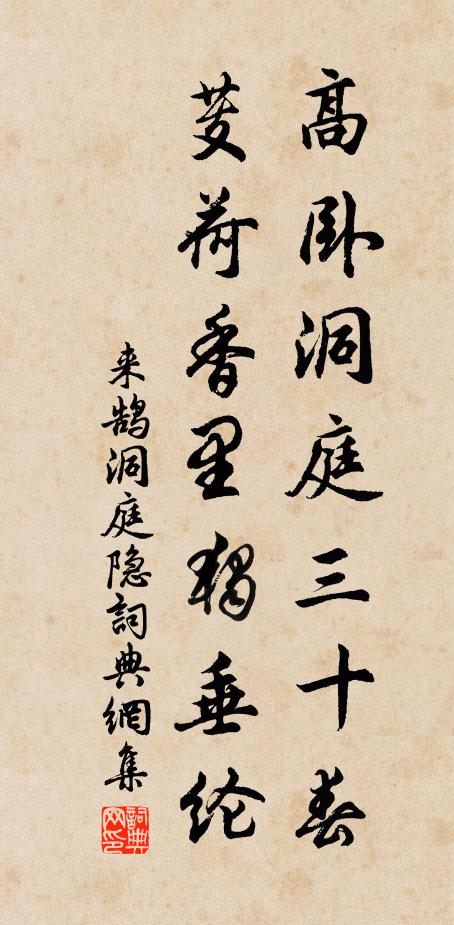 高卧洞庭三十春
芰荷香里独垂纶
来鹄洞庭隐詞典網集
詞典网印